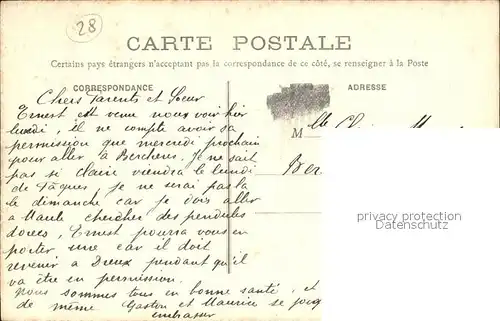 28
CARTE POSTALE
Certains pays étrangers n'acceptant pas la correspondance de ce côté, se renseigner à la Poste
CORRESPONDANCE
ADRESSE
Chers Parents et Soeur
Ernest est venu nous voir hier
lundi, il ne compte avoir sa
permission que mercredi prochain
pour aller à Bercheres. Je ne sait
pas si Claire viendra le lundi
de Pâques, je ne serai pas là
le dimanche car je dois aller
à Maule chercher des pendules
dorées, Ernest pourra vous en
porter une car il doit
revenir à Dreux pendant qu'il
va être en permission.
Nous sommes tous en bonne santé, et
de même Gaston et Maurice se
embrasser
Mlle Claire
Ber
privacy protection
Datenschutz